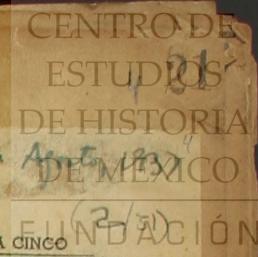 CENTRO DE
ESTUDIOS
DE HISTORIA
Agosto, 1937"
DE MEXICO
(2/31)
FUNDACIÓN
A CINCO